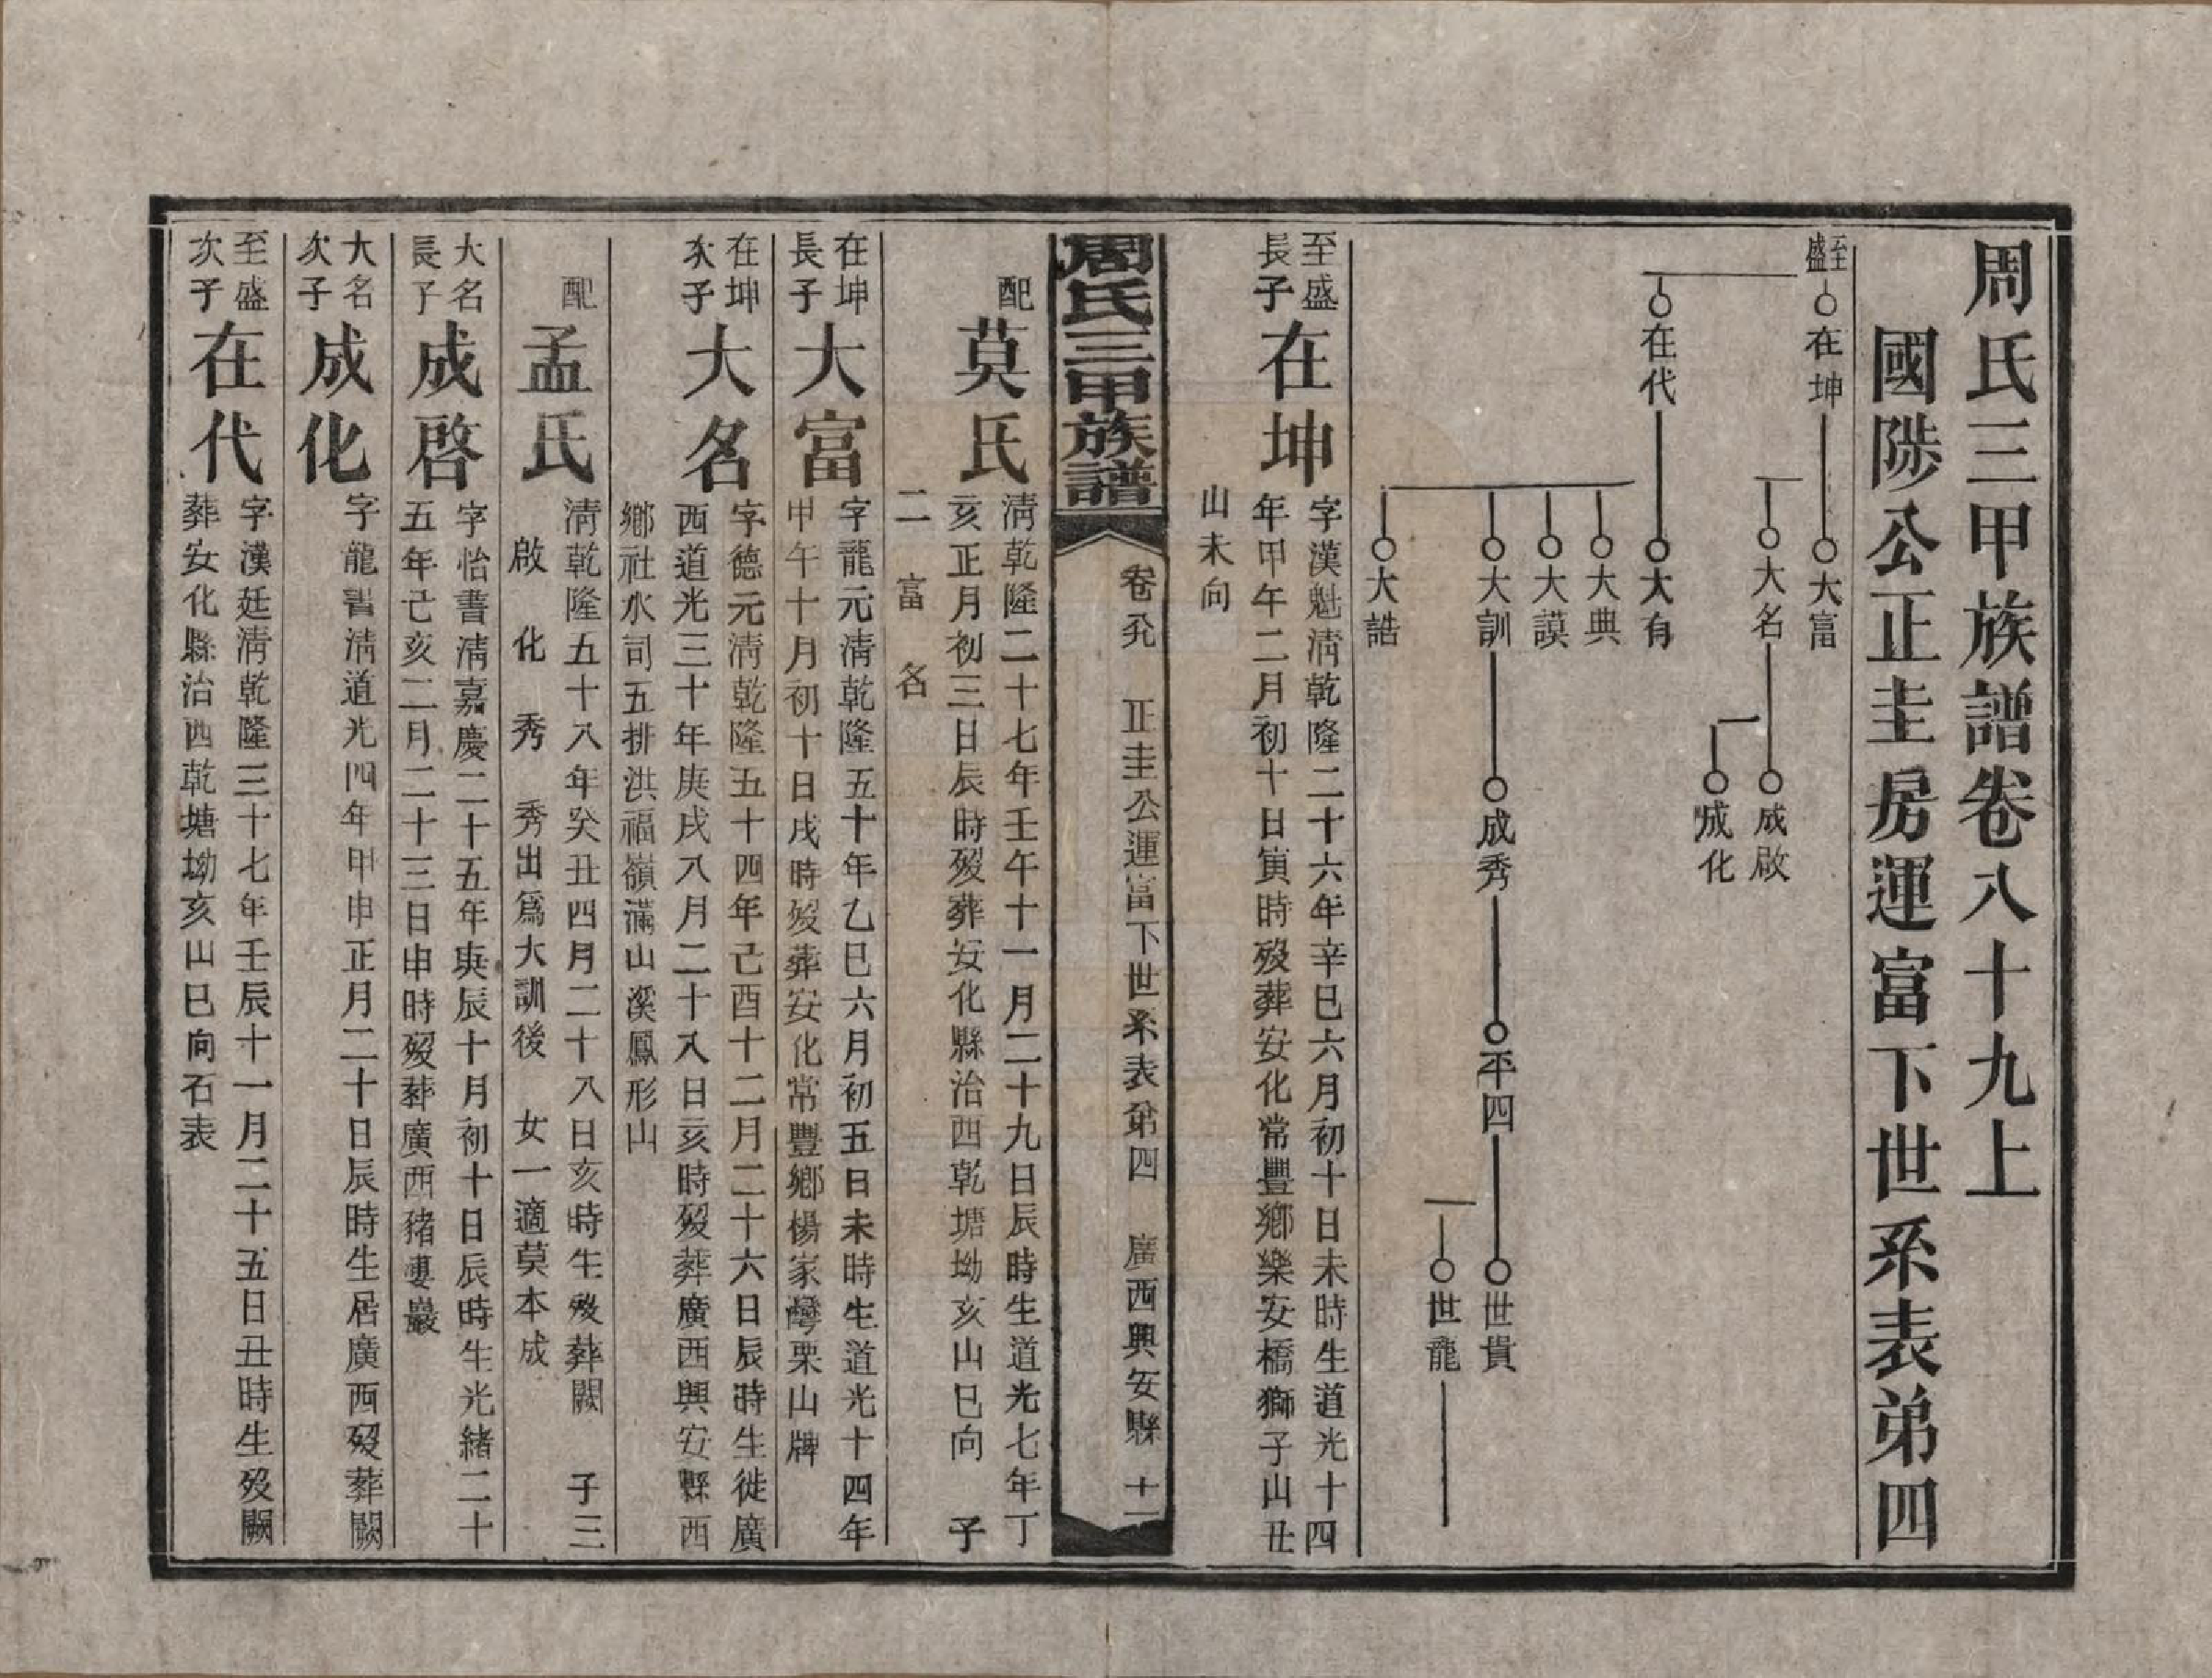 周氏三甲族譜卷八十九上
國陟公正圭房運富下世系表弟四
至盛
在坤
大富
大名
成啟
成化
在代
大有
大典
大謨
大訓
成秀
平四
世貴
世龍
大誥
至盛長子
在坤
字漢魁淸乾隆二十六年辛巳六月初十日未時生道光十四
年甲午二月初十日寅時歿葬安化常豐鄉樂安橋獅子山丑
山未向
周氏三甲族譜
卷 正圭公運富下世系表弟四 廣西興安縣 十一
配
莫氏
淸乾隆二十七年壬午十一月二十九日辰時生道光七年丁
亥正月初三日辰時歿葬安化縣治西乾塘坳亥山巳向 子
二 富 名
在坤長子
大富
字龍元淸乾隆五十年乙巳六月初五日未時生道光十四年
甲午十月初十日戌時歿葬安化常豐鄉楊家灣栗山牌
在坤次子
大名
字德元淸乾隆五十四年己酉十二月二十六日辰時生徙廣
西道光三十年庚戌八月二十八日亥時歿葬廣西興安縣西
鄉社水司五排洪福嶺滿山溪鳳形山
配
孟氏
淸乾隆五十八年癸丑四月二十八日亥時生歿葬闕 子三
啟 化 秀 秀出爲大訓後 女一適莫本成
大名長子
成啓
字怡書淸嘉慶二十五年庚辰十月初十日辰時生光緒二十
五年己亥二月二十三日申時歿葬廣西豬婁巖
大名次子
成化
字龍書淸道光四年甲申正月二十日辰時生居廣西歿葬闕
至盛次子
在代
字漢廷淸乾隆三十七年壬辰十一月二十五日丑時生歿闕
葬安化縣治西乾塘坳亥山巳向石表